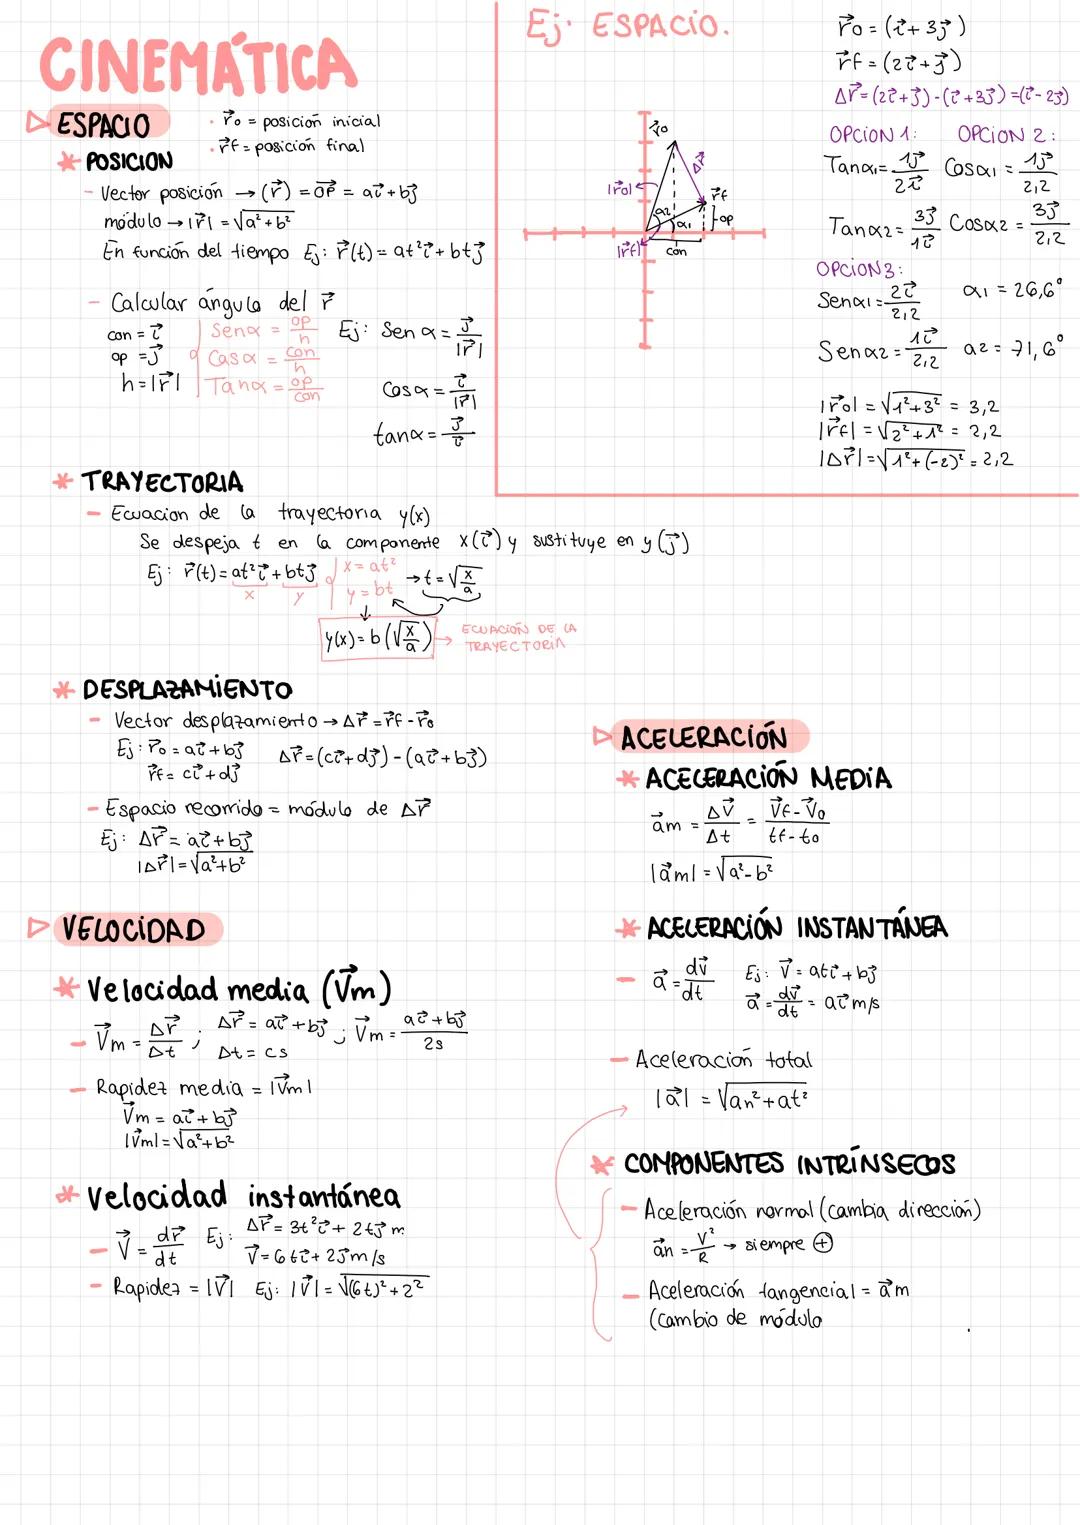 CINEMÁTICA
▷ ESPACIO
· r⃗o = posición inicial
· r⃗f = posición final
* POSICION
- Vector posición → (r⃗) = OP⃗ = ai⃗ + bj⃗
módulo → |r⃗| = √a² + b²
En función del tiempo Ej: r⃗(t) = at²i⃗ + btj⃗
- Calcular ángulo del r⃗
con = i⃗
op = j⃗
h = |r⃗|
Senα = op/h
Cosα = con/h
Tanα = op/con
Ej: Sen α = j⃗/|r⃗|
Cosα = i⃗/|r⃗|
tanα = j⃗/i⃗
Ej. ESPACIO.
r⃗o
Δr⃗
|r⃗o|
r⃗f
α2
α1
op
|r⃗f|
con
r⃗o = (i⃗ + 3j⃗)
r⃗f = (2i⃗ + j⃗)
Δr⃗ = (2i⃗ + j⃗) - (i⃗ + 3j⃗) = (i⃗ - 2j⃗)
OPCION 1: OPCION 2:
Tanα1 = 1j⃗/2i⃗ Cosα1 = 1j⃗/2,2
Tanα2 = 3j⃗/1i⃗ Cosα2 = 3j⃗/2,2
OPCION 3:
Senα1 = 2i⃗/2,2 α1 = 26,6°
Senα2 = 1i⃗/2,2 α2 = 71,6°
|r⃗o| = √1² + 3² = 3,2
|r⃗f| = √2² + 1² = 2,2
|Δr⃗| = √1² + (-2)² = 2,2
* TRAYECTORIA
- Ecuacion de la trayectoria y(x)
Se despeja t en la componente x(i⃗) y sustituye en y(j⃗)
Ej: r⃗(t) = at²i⃗ + btj⃗
x y
x = at²
y = bt
→ t = √x/a
y(x) = b (√x/a) → ECUACIÓN DE LA
TRAYECTORIA
* DESPLAZAMIENTO
- Vector desplazamiento → Δr⃗ = r⃗f - r⃗o
Ej: r⃗o = ai⃗ + bj⃗
r⃗f = ci⃗ + dj⃗
Δr⃗ = (ci⃗ + dj⃗) - (ai⃗ + bj⃗)
- Espacio recorrido = módulo de Δr⃗
Ej: Δr⃗ = ai⃗ + bj⃗
|Δr⃗| = √a² + b²
▷ VELOCIDAD
* Velocidad media (V⃗m)
- V⃗m = Δr⃗/Δt ; Δr⃗ = ai⃗ + bj⃗ ; V⃗m = ai⃗ + bj⃗/2s
Δt = cs
- Rapidez media = |V⃗m|
V⃗m = ai⃗ + bj⃗
|V⃗m| = √a² + b²
* Velocidad instantánea
- V⃗ = dr⃗/dt Ej: Δr⃗ = 3t²i⃗ + 2tj⃗ m
V⃗ = 6ti⃗ + 2j⃗ m/s
- Rapidez = |V⃗| Ej: |V⃗| = √(6t)² + 2²
▷ ACELERACIÓN
* ACELERACIÓN MEDIA
a⃗m = ΔV⃗/Δt = V⃗f - V⃗o/tf - to
|a⃗m| = √a² - b²
* ACELERACIÓN INSTANTÁNEA
- a⃗ = dv⃗/dt Ej: V⃗ = ati⃗ + bj⃗
a⃗ = dv⃗/dt = ai⃗ m/s
- Aceleración total
|a⃗| = √an² + at²
* COMPONENTES INTRÍNSECOS
- Aceleración normal (cambia dirección)
a⃗n = V²/R → siempre ⊕
- Aceleración tangencial = a⃗m
(cambio de módulo